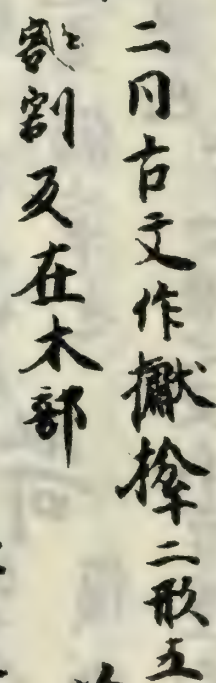 二同古文作二形五
割割反在木部